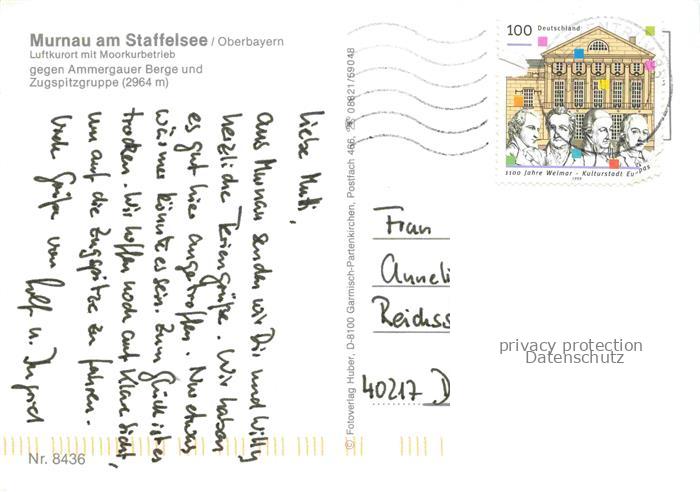 Murnau am Staffelsee / Oberbayern
Luftkurort mit Moorkurbetrieb
gegen Ammergauer Berge und
Zugspitzgruppe (2964 m)
Liebe Mutti,
aus Murnau senden wir Dir und Willy
herzliche Feriengrüße. Wir haben
es gut hier angetroffen. Nur etwas
wärmer könnte es sein. Zum Glück ist es
trocken. Wir hoffen noch auf klare Sicht,
um auf die Zugspitze zu fahren.
Viele Grüße von
Rolf u. Ingrid
Nr. 8436
© Fotoverlag Huber, D-8100 Garmisch-Partenkirchen, Postfach 466, 08821/59048
100 Deutschland
1100 Jahre Weimar - Kulturstadt Europas
1999
Frau
Anneli
Reichss
40217 D
privacy protection
Datenschutz